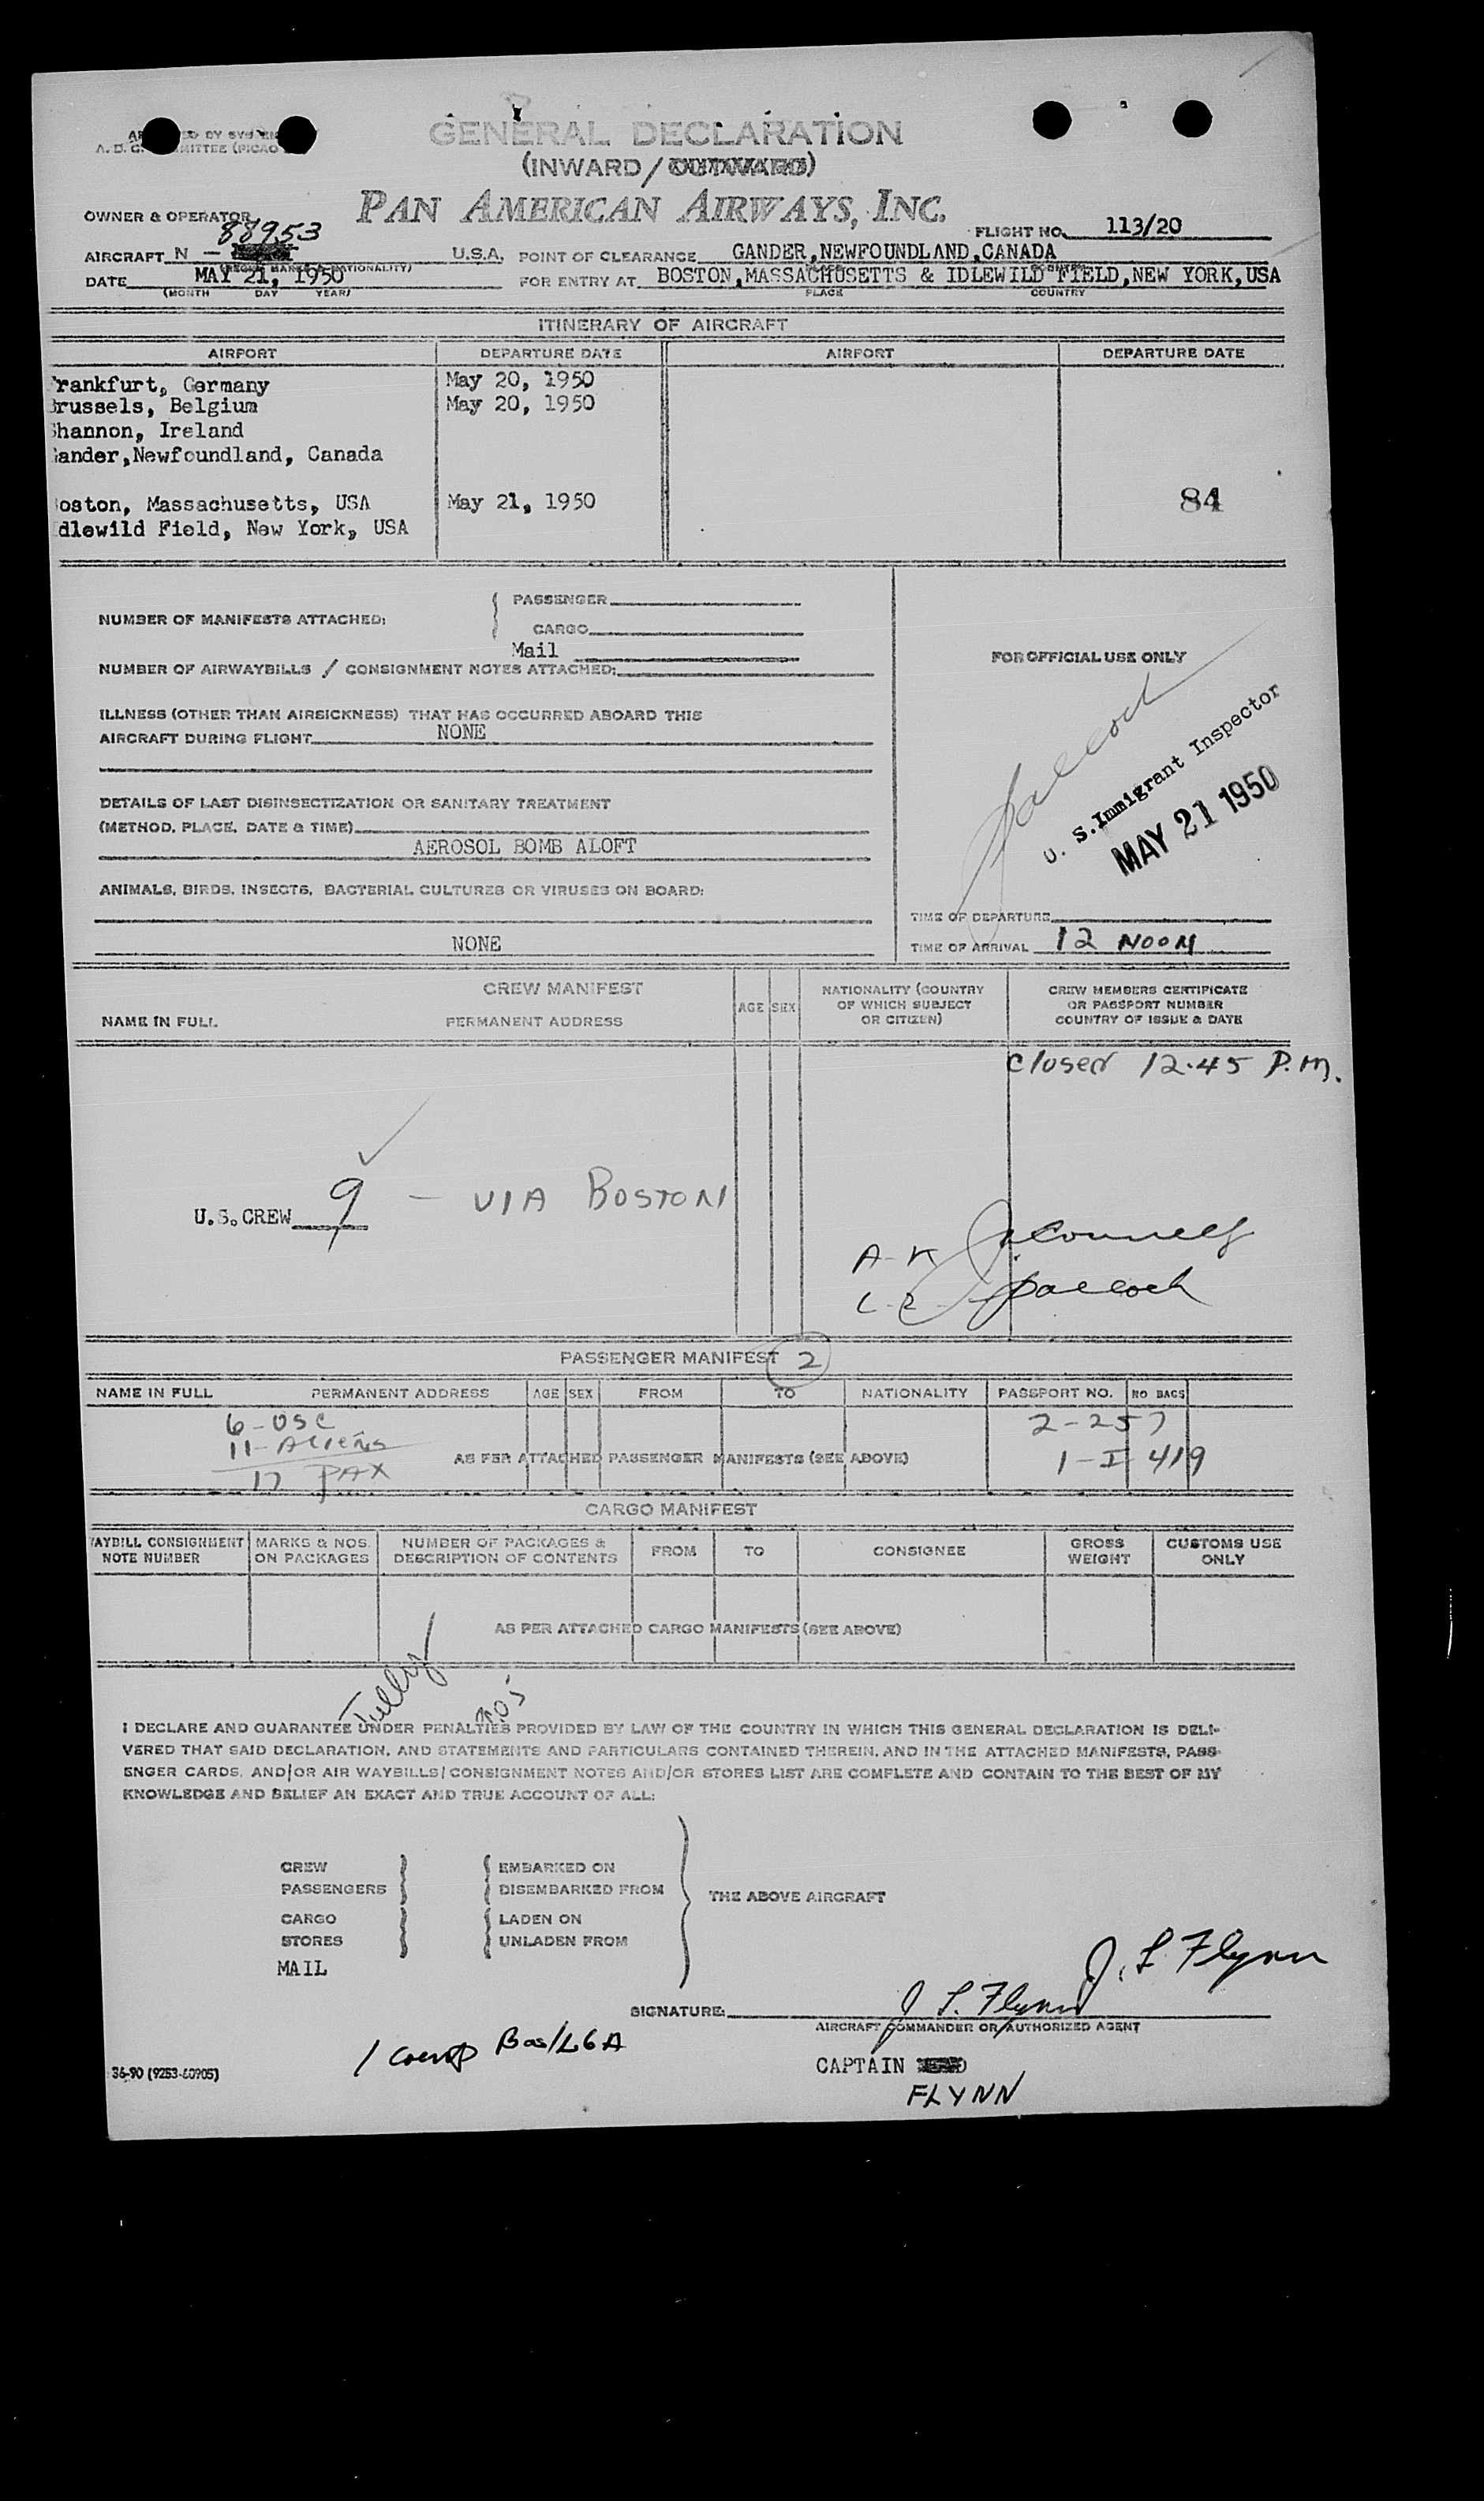 GENERAL DECLARATION
(INWARD/OUTWARD)
PAN AMERICAN AIRWAYS, INC.
OWNER & OPERATOR
FLIGHT NO. 113/20
AIRCRAFT N - 88953 U.S.A. POINT OF CLEARANCE GANDER,NEWFOUNDLAND,CANADA
DATE MAY 21, 1950 FOR ENTRY AT BOSTON,MASSACHUSETTS & IDLEWILD FIELD,NEW YORK,USA
(MONTH DAY YEAR) PLACE COUNTRY
ITINERARY OF AIRCRAFT
AIRPORT DEPARTURE DATE AIRPORT DEPARTURE DATE
rankfurt, Germany May 20, 1950
russels, Belgium May 20, 1950
hannon, Ireland
ander,Newfoundland, Canada
oston, Massachusetts, USA May 21, 1950 84
dlewild Field, New York, USA
NUMBER OF MANIFESTS ATTACHED:
PASSENGER
CARGO
Mail
NUMBER OF AIRWAYBILLS / CONSIGNMENT NOTES ATTACHED:
ILLNESS (OTHER THAN AIRSICKNESS) THAT HAS OCCURRED ABOARD THIS
AIRCRAFT DURING FLIGHT NONE
DETAILS OF LAST DISINSECTIZATION OR SANITARY TREATMENT
(METHOD, PLACE, DATE & TIME)
AEROSOL BOMB ALOFT
ANIMALS, BIRDS, INSECTS, BACTERIAL CULTURES OR VIRUSES ON BOARD:
NONE
FOR OFFICIAL USE ONLY
U. S. Immigrant Inspector
MAY 21 1950
TIME OF DEPARTURE
TIME OF ARRIVAL 12 NOON
CREW MANIFEST
NAME IN FULL PERMANENT ADDRESS AGE SEX
NATIONALITY (COUNTRY
OF WHICH SUBJECT
OR CITIZEN)
CREW MEMBERS CERTIFICATE
OR PASSPORT NUMBER
COUNTRY OF ISSUE & DATE
Closed 12.45 P.M.
U.S.CREW 9 - VIA BOSTON
PASSENGER MANIFEST 2
NAME IN FULL PERMANENT ADDRESS AGE SEX FROM TO NATIONALITY PASSPORT NO. NO BAGS
6-USC 2-257
11-Aliens AS PER ATTACHED PASSENGER MANIFESTS (SEE ABOVE) 1-I 419
17 PAX
CARGO MANIFEST
AYBILL CONSIGNMENT
NOTE NUMBER
MARKS & NOS.
ON PACKAGES
NUMBER OF PACKAGES &
DESCRIPTION OF CONTENTS
FROM TO CONSIGNEE
GROSS
WEIGHT
CUSTOMS USE
ONLY
AS PER ATTACHED CARGO MANIFESTS (SEE ABOVE)
I DECLARE AND GUARANTEE UNDER PENALTIES PROVIDED BY LAW OF THE COUNTRY IN WHICH THIS GENERAL DECLARATION IS DELI-
VERED THAT SAID DECLARATION, AND STATEMENTS AND PARTICULARS CONTAINED THEREIN, AND IN THE ATTACHED MANIFESTS, PASS-
ENGER CARDS, AND/OR AIR WAYBILLS/CONSIGNMENT NOTES AND/OR STORES LIST ARE COMPLETE AND CONTAIN TO THE BEST OF MY
KNOWLEDGE AND BELIEF AN EXACT AND TRUE ACCOUNT OF ALL:
CREW EMBARKED ON
PASSENGERS DISEMBARKED FROM
THE ABOVE AIRCRAFT
CARGO LADEN ON
STORES UNLADEN FROM
MAIL
J. L. Flynn
SIGNATURE: J L. Flynn
AIRCRAFT COMMANDER OR AUTHORIZED AGENT
CAPTAIN
FLYNN
36-90 (9253-60905)